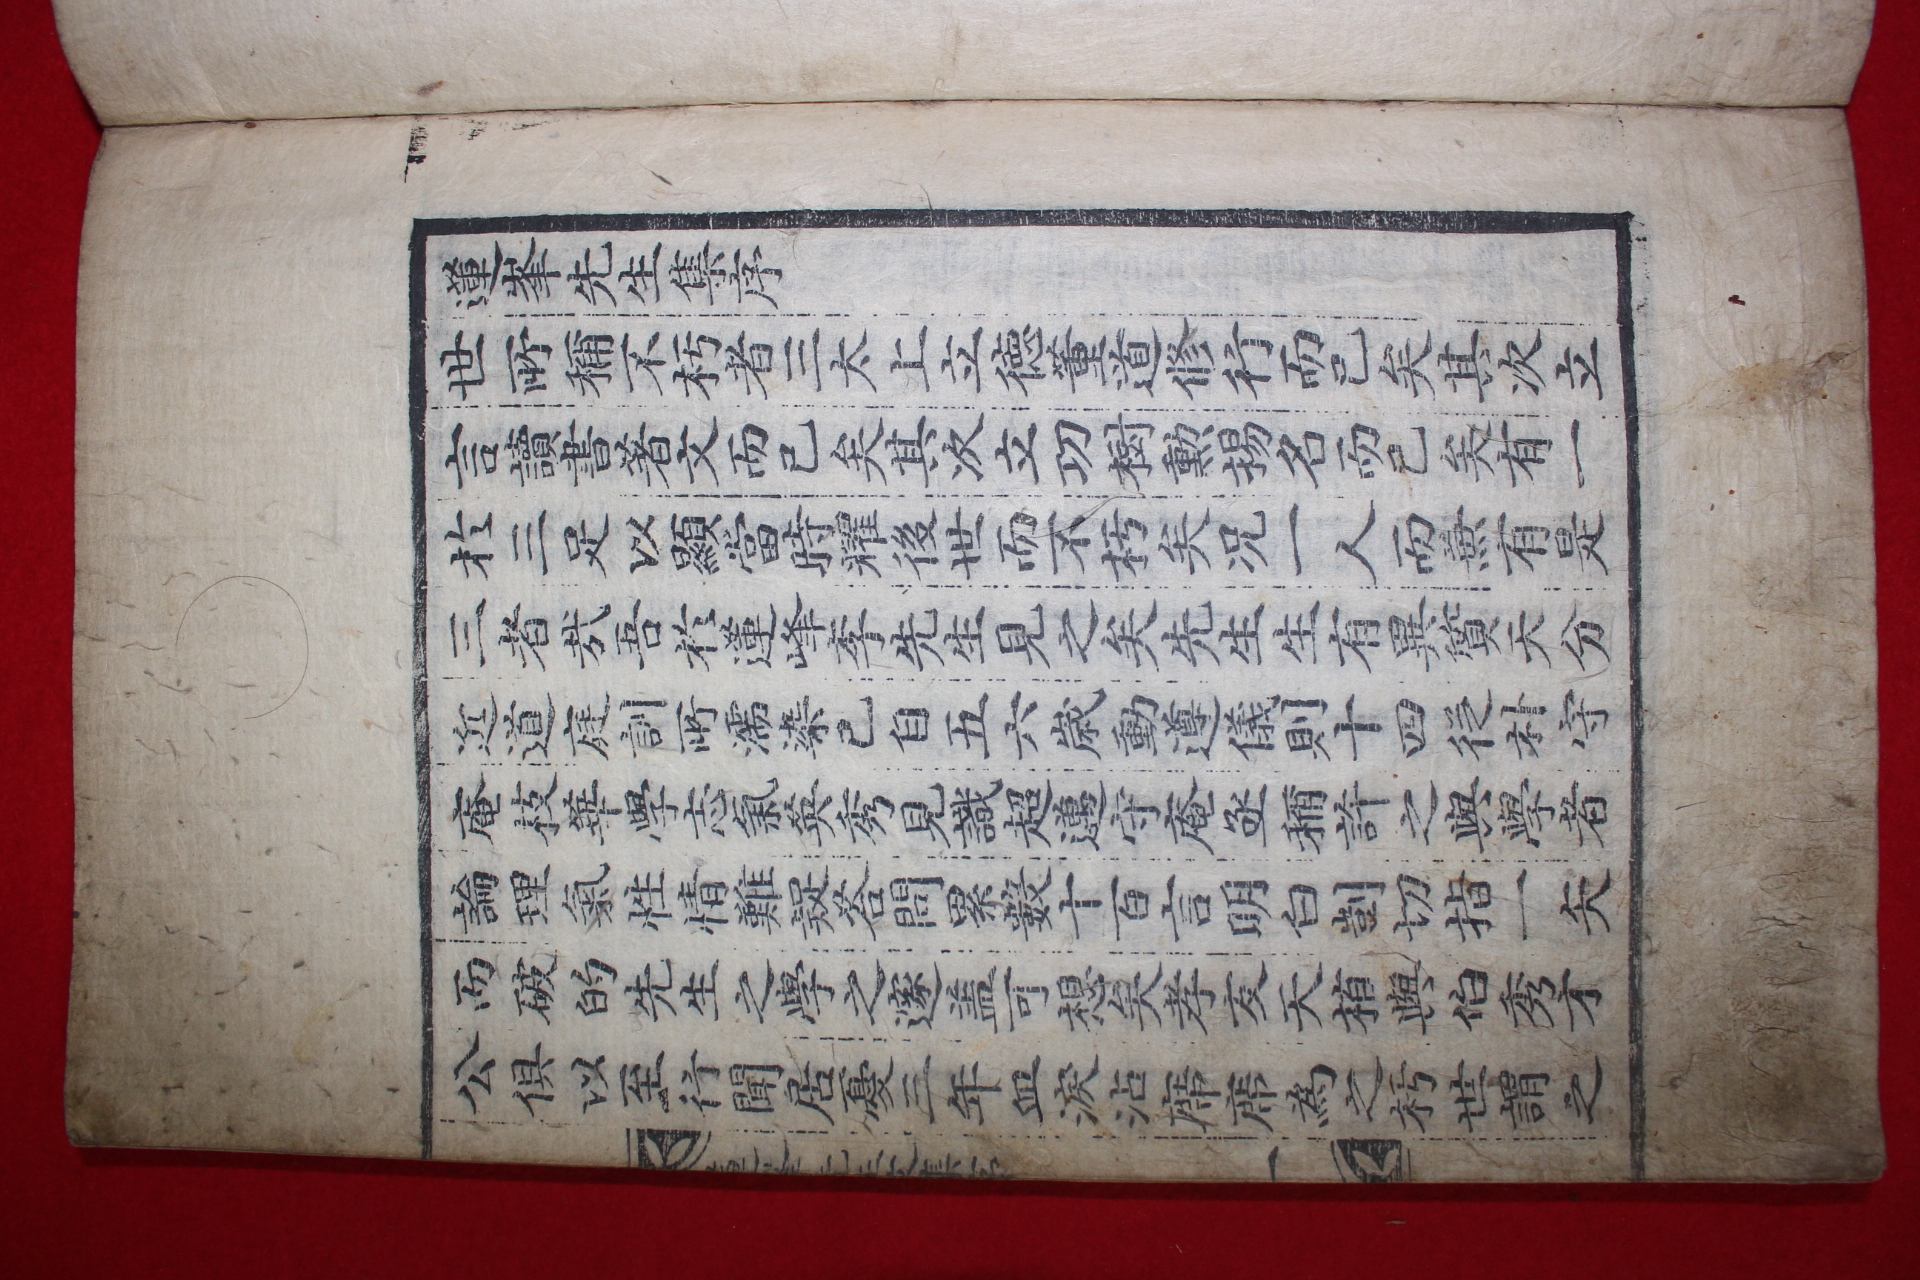 蓮峯先生集序
世所稱不朽者三太上立德道修行而已矣其次立
言讀書著文而已矣其次立功樹勳揚名而已矣有一
於三足以顯當時耀後世而不朽矣況一人而兼有是
三者哉吾於蓮峰李先生見之矣先生生有異質天分
近道庭訓所濡染已自五六歲動遵儀則十四從朴守
庵枝華學志氣英秀見識超邁守庵亟稱許之與學者
論理氣性情難疑答問累數十百言明白剴切指一矢
而破的先生之學之邃盖可想矣孝友天植與伯秀才
公俱以至行聞居憂三年血淚沾席席爲之朽世謂之